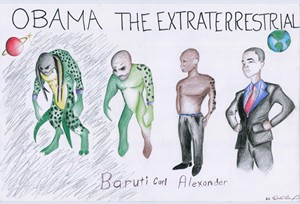 OBAMA THE EXTRATERRESTRIAL
Baruti Carl Alexander